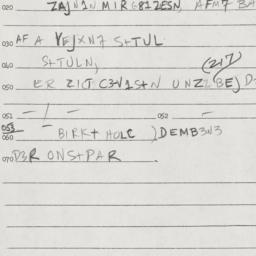 020 ZAJN1N MIRG812ESN AFM7 BA
030 AF A YEJXN7 S+TUL
040 S+TULN,
(217)
050 ER ZICT C3V1S+N UNZ2BEJ D
051 — / — 052 —
053 —
060 BIRK+ HOLC )DEMB3W3
070 D3R ONS+PAR .